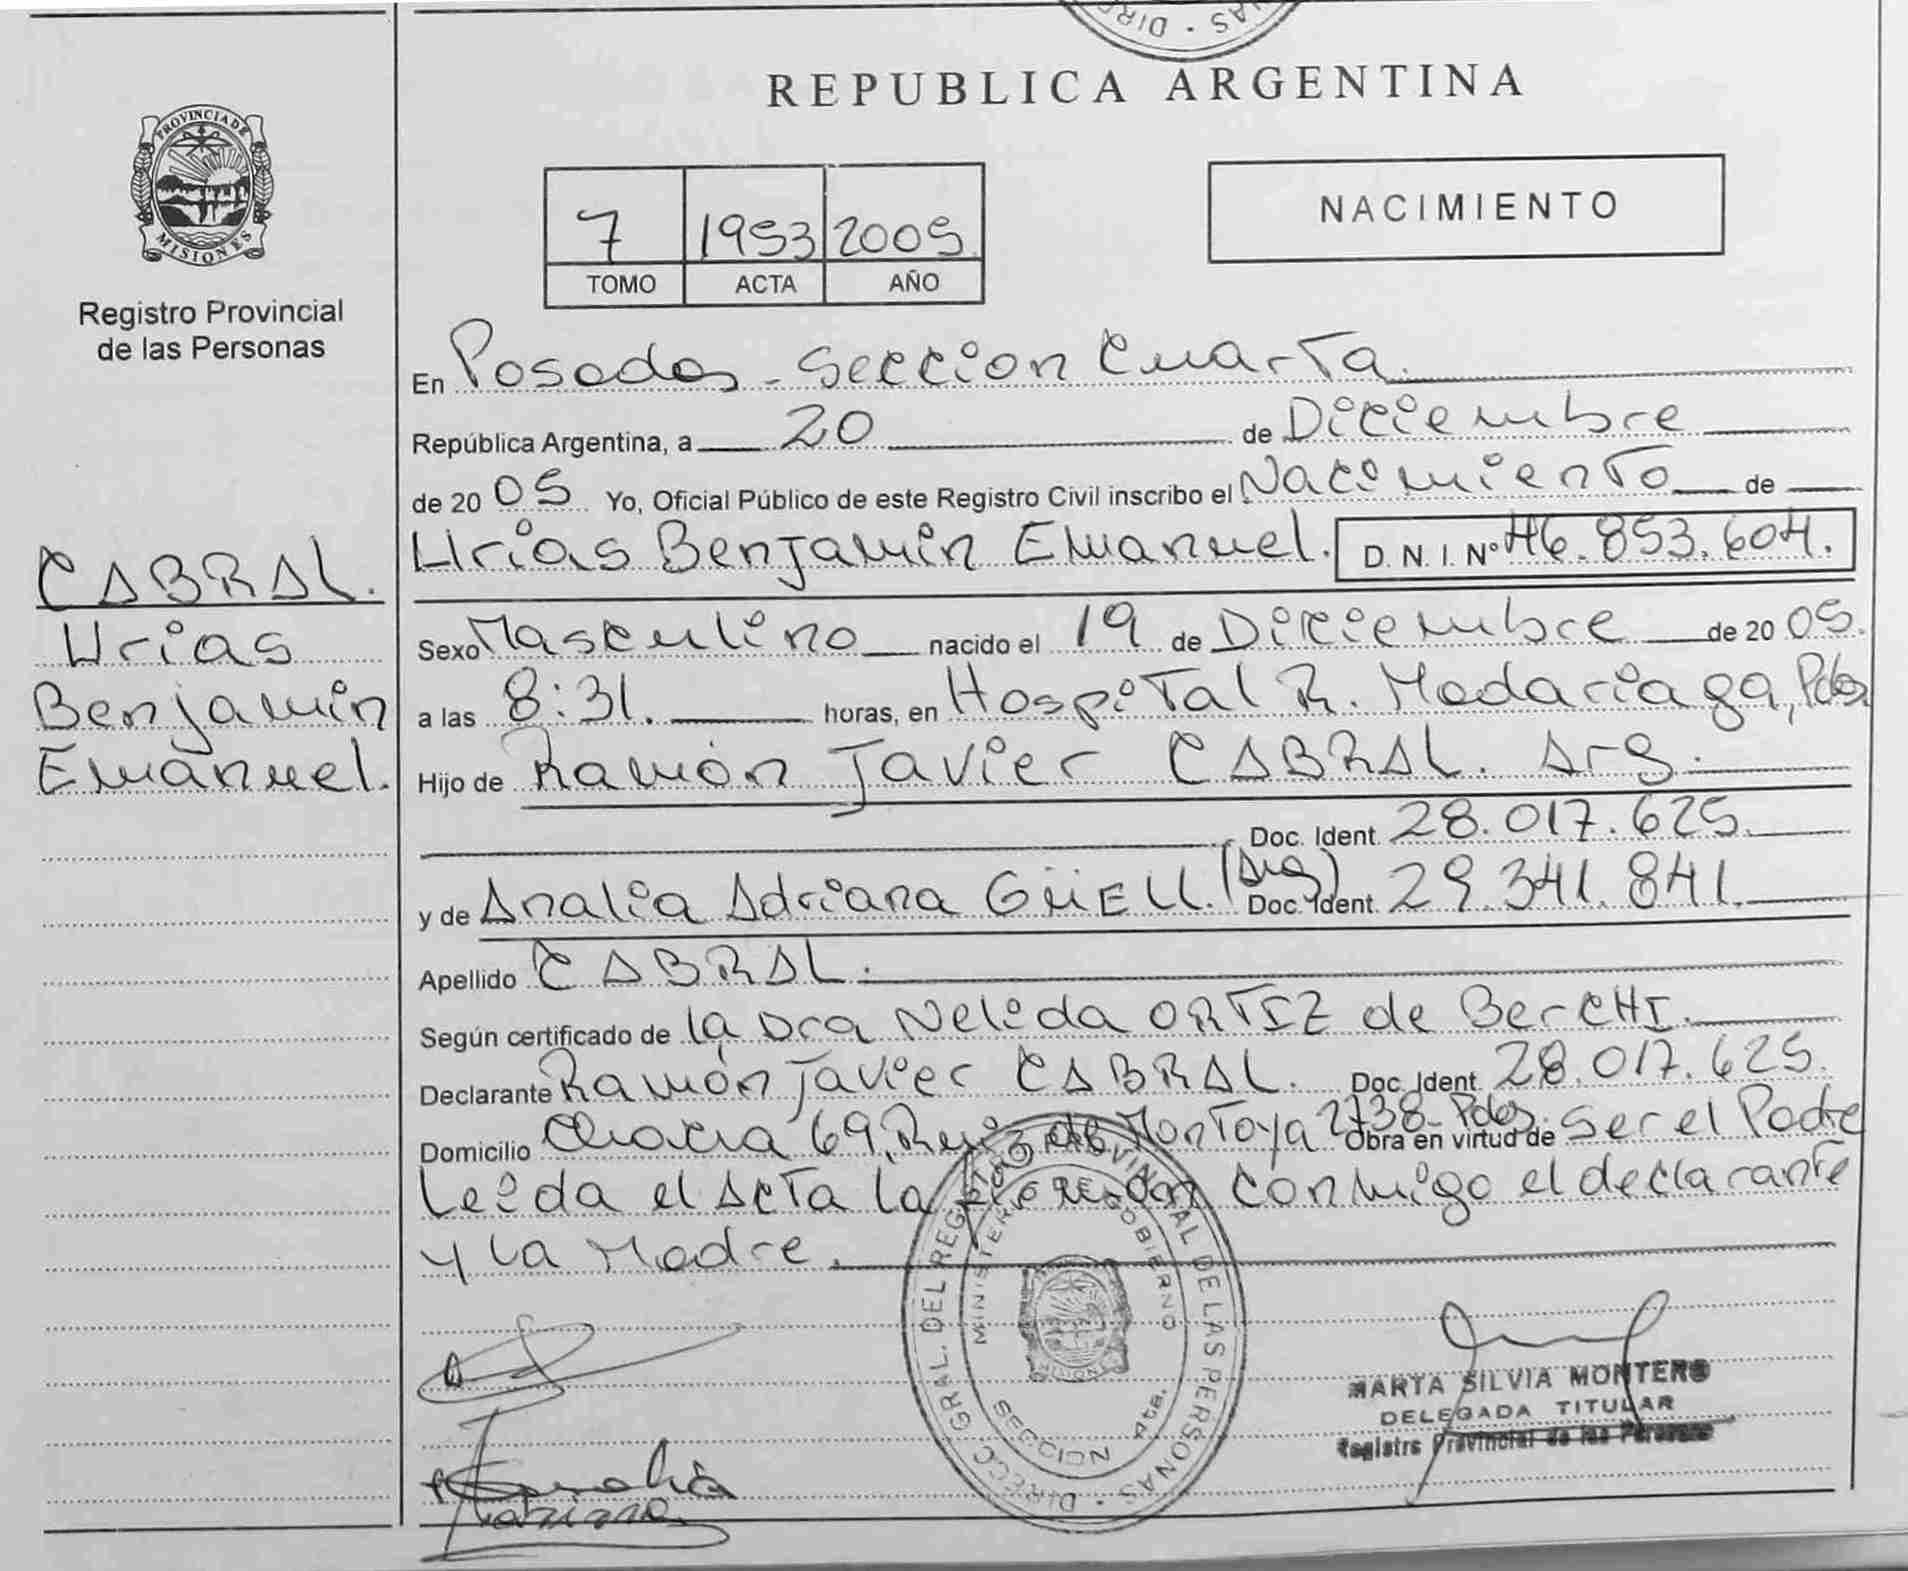 DIREC · NAS
REPUBLICA ARGENTINA
PROVINCIA DE
MISIONES
Registro Provincial
de las Personas
NACIMIENTO
7 1953 2005
TOMO ACTA AÑO
En Posadas - Seccion Cuarta.
República Argentina, a 20 de Diciembre
de 20 05 Yo, Oficial Público de este Registro Civil inscribo el Nacimiento de
Urias Benjamin Emanuel. D. N. I. Nº 46.853.604.
CABRAL.
Urias
Benjamin
Emanuel.
Sexo Masculino nacido el 19 de Diciembre de 20 05.
a las 8:31. horas, en Hospital R. Madariaga, Pdas.
Hijo de Ramón Javier CABRAL. Arg.
Doc. Ident. 28.017.625.
y de Analia Adriana GÜELL. (Arg) Doc. Ident. 29.341.841.
Apellido CABRAL.
Según certificado de la Dra Nelida ORTIZ de BerCHI.
Declarante Ramón Javier CABRAL. Doc. Ident. 28.017.625.
Domicilio Chacra 69, Ruiz de Montoya 2738- Pdas. Obra en virtud de ser el Padre
Leida el Acta la firman conmigo el declarante
y la Madre.
DIRECC. GRAL. DEL REGISTRO PROVINCIAL DE LAS PERSONAS ·
MINISTERIO DE GOBIERNO
SECCION 4ta.
MARTA SILVIA MONTERO
DELEGADA TITULAR
Registro Provincial de las Personas